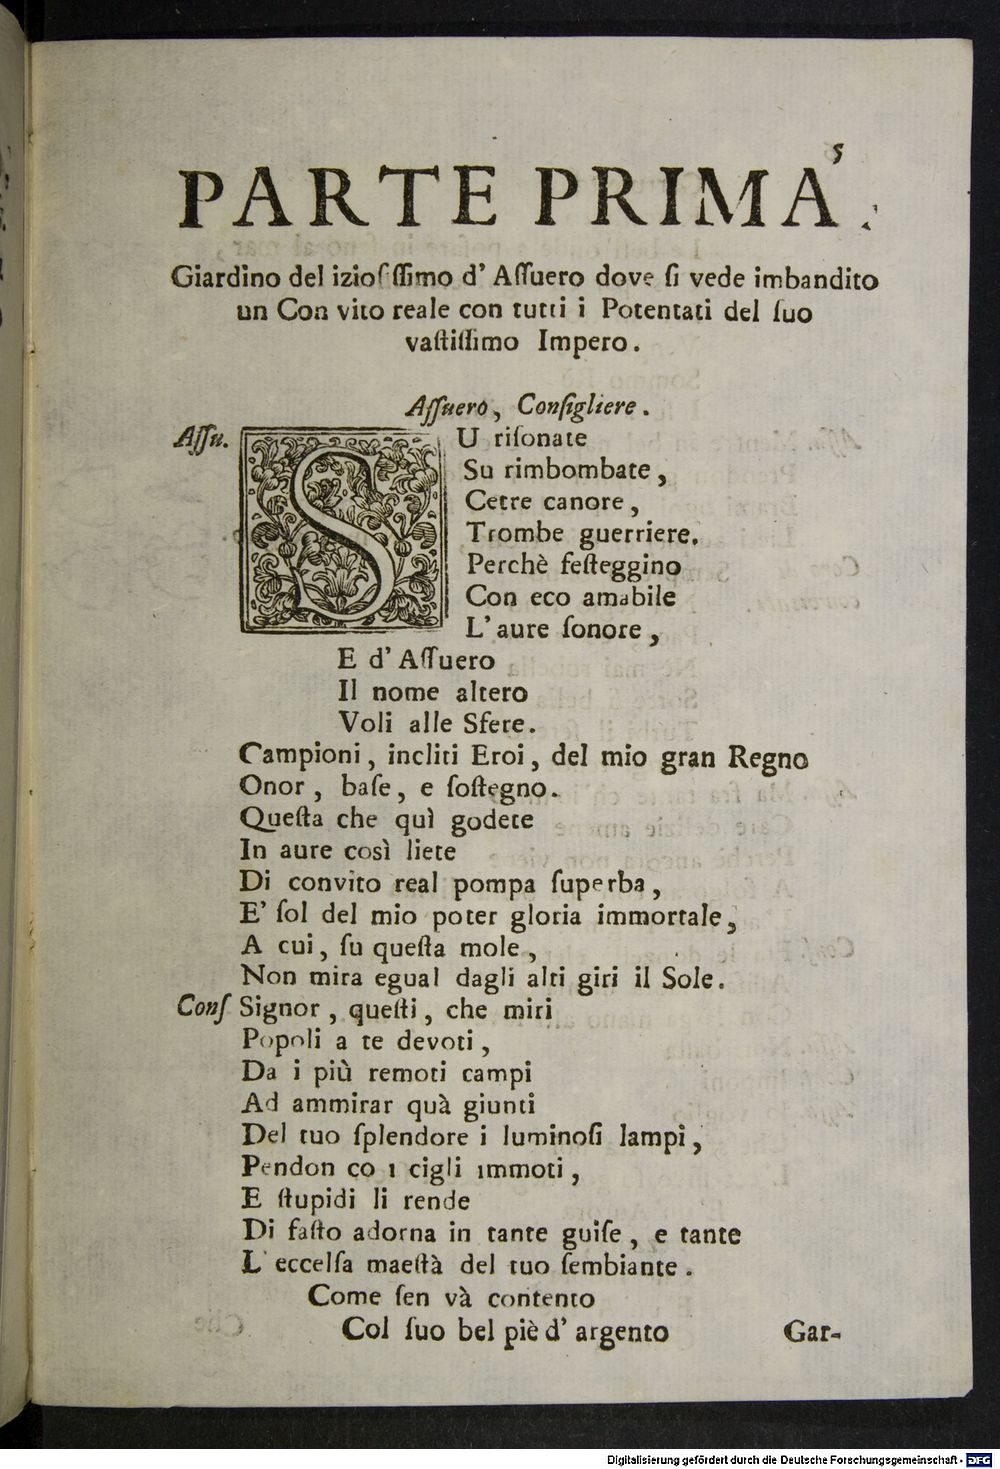 5
PARTE PRIMA.
Giardino del izioſ ſſimo d' Aſſuero dove ſi vede imbandito
un Con vito reale con tutti i Potentati del ſuo
vaſtiſſimo Impero.
Aſſuero, Conſigliere.
Aſſu. SU riſonate
Su rimbombate,
Cetre canore,
Trombe guerriere.
Perchè feſteggino
Con eco amabile
L' aure ſonore,
E d' Aſſuero
Il nome altero
Voli alle Sfere.
Campioni, incliti Eroi, del mio gran Regno
Onor, baſe, e ſoſtegno.
Queſta che quì godete
In aure così liete
Di convito real pompa ſuperba,
E' ſol del mio poter gloria immortale,
A cui, ſu queſta mole,
Non mira egual dagli alti giri il Sole.
Conſ Signor, queſti, che miri
Popoli a te devoti,
Da i più remoti campi
Ad ammirar quà giunti
Del tuo ſplendore i luminoſi lampi,
Pendon co i cigli immoti,
E ſtupidi li rende
Di faſto adorna in tante guiſe, e tante
L' eccelſa maeſtà del tuo ſembiante.
Come ſen và contento
Col ſuo bel piè d' argento
Gar-
Digitalisierung gefördert durch die Deutsche Forschungsgemeinschaft - DFG